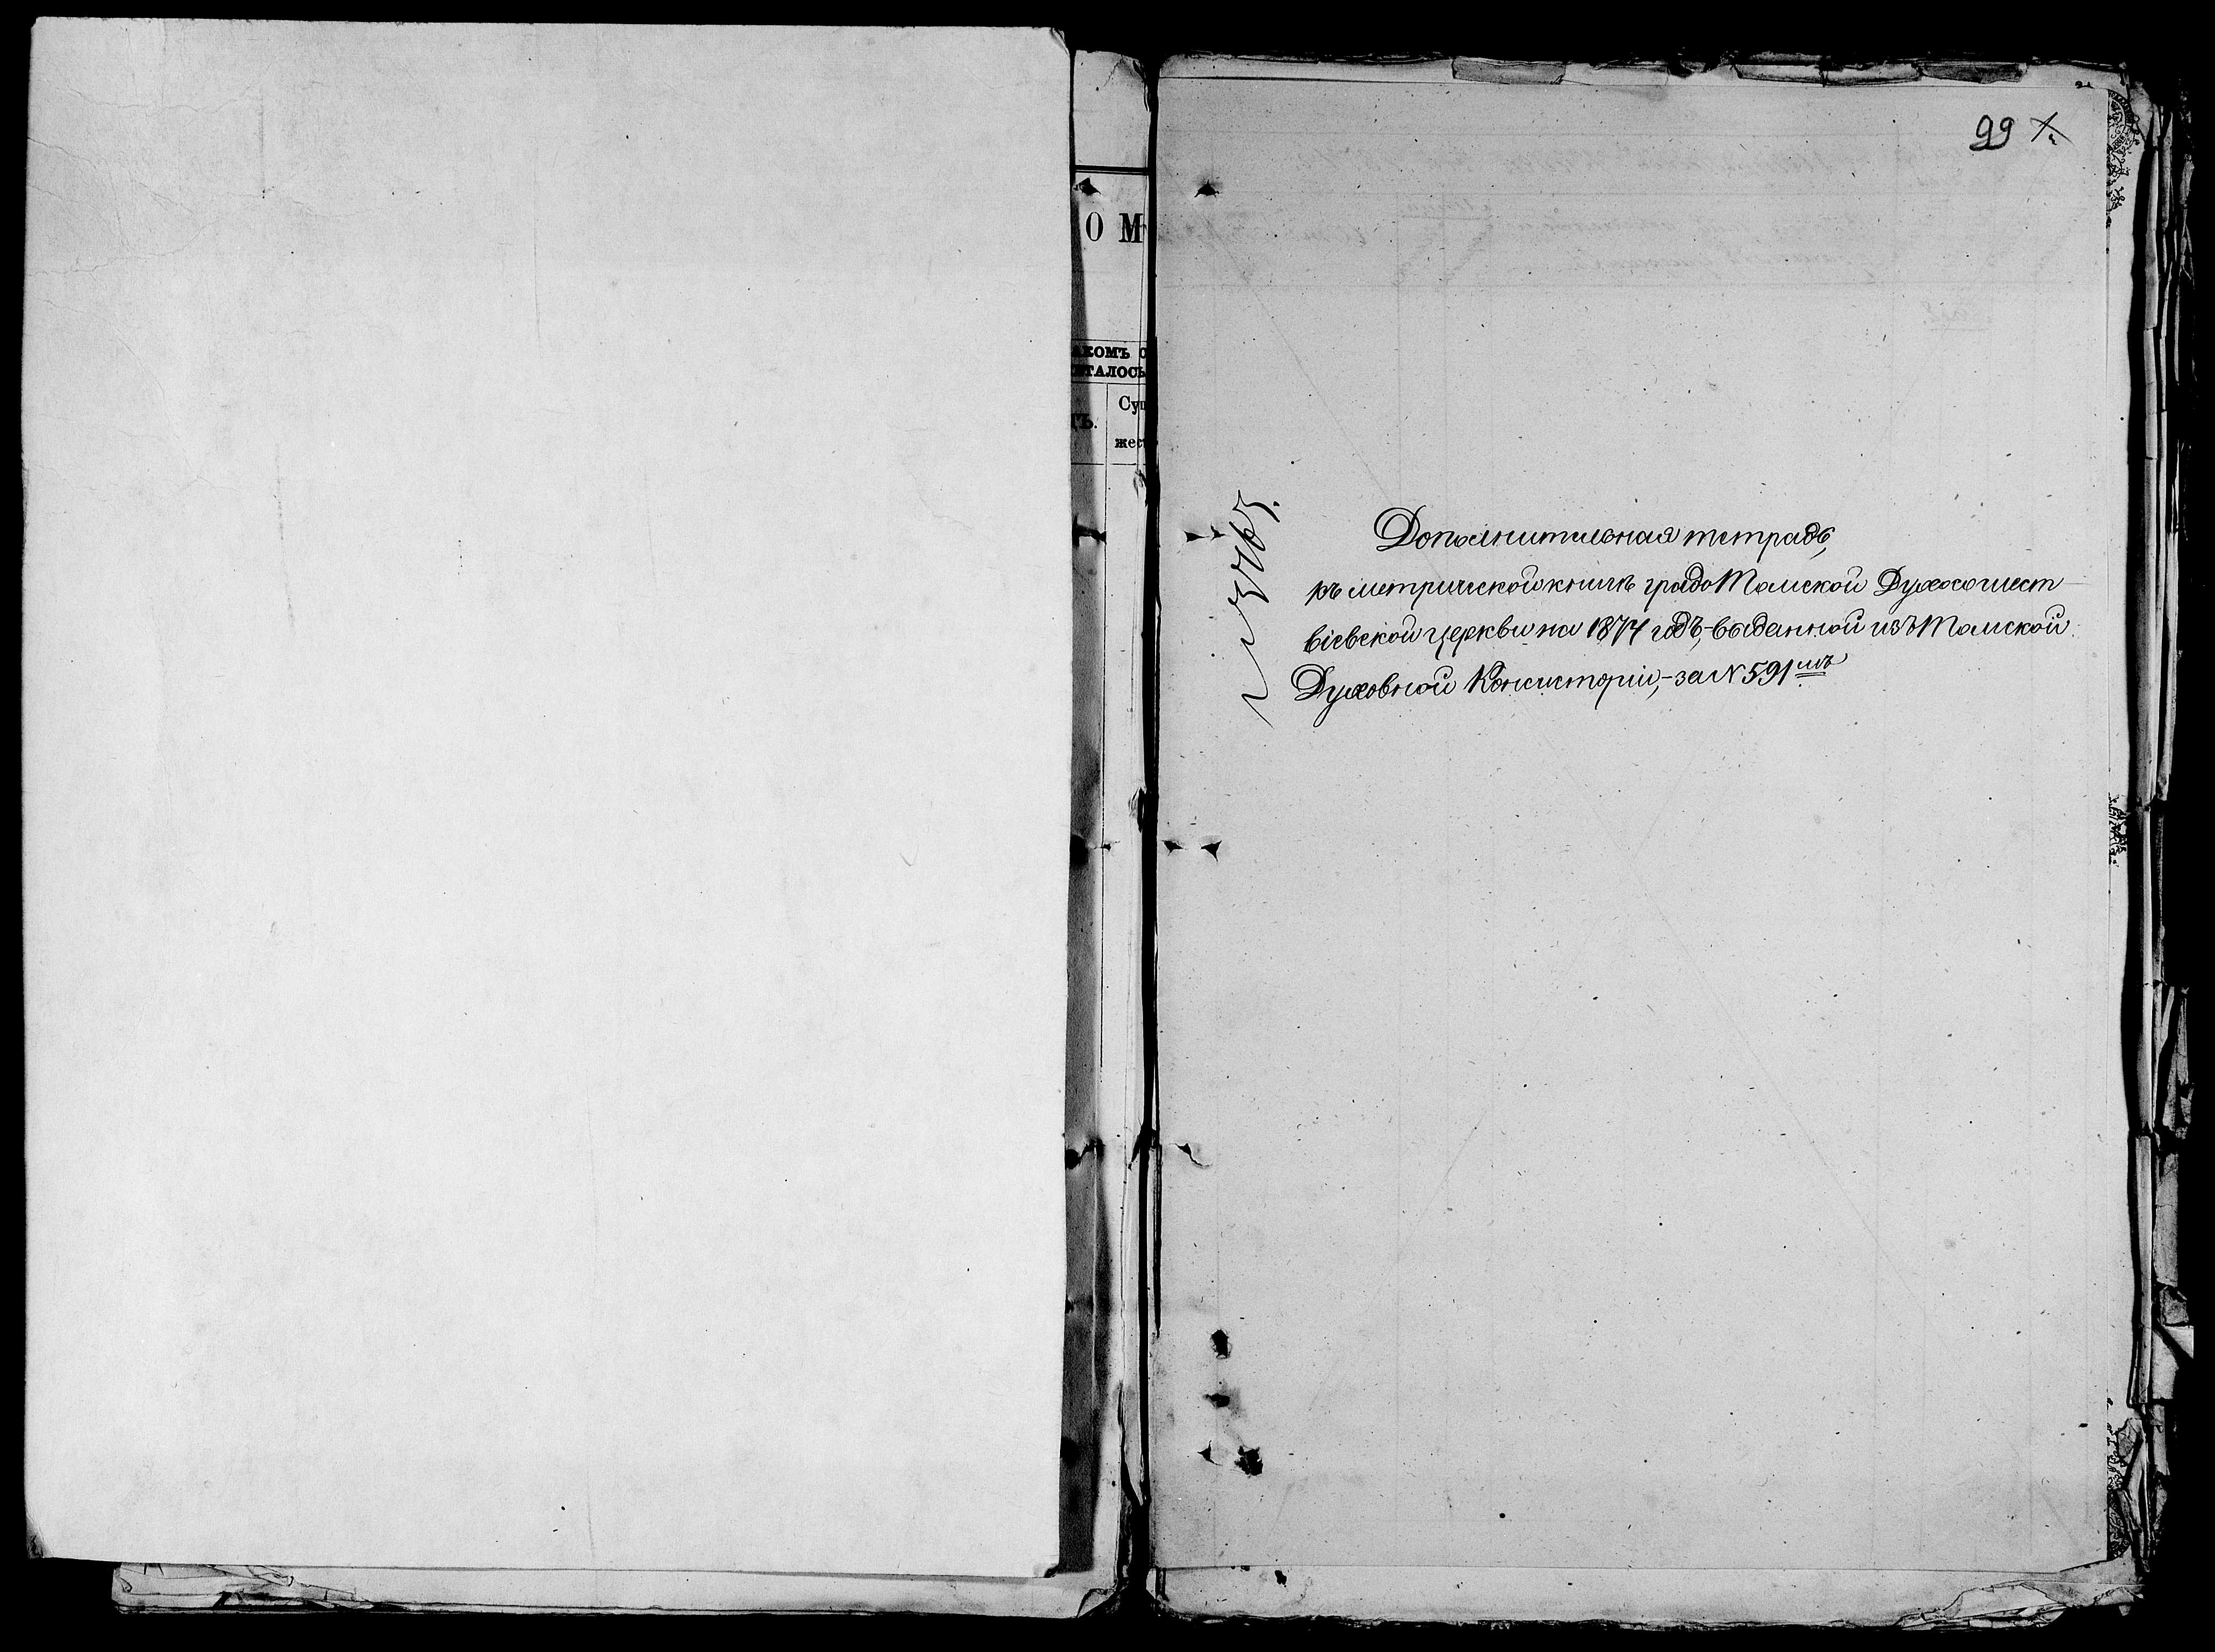 О М
АКОМЪ С
ИТАЛОСЬ
Сущ
ТЪ.
жест
99
Дополнительная тетрадь,
къ метрической книгѣ градо Томской Духосошест
віевской церкви на 1874 годъ, выданной изъ Томской
Духовной Консисторіи, - за N 591мъ